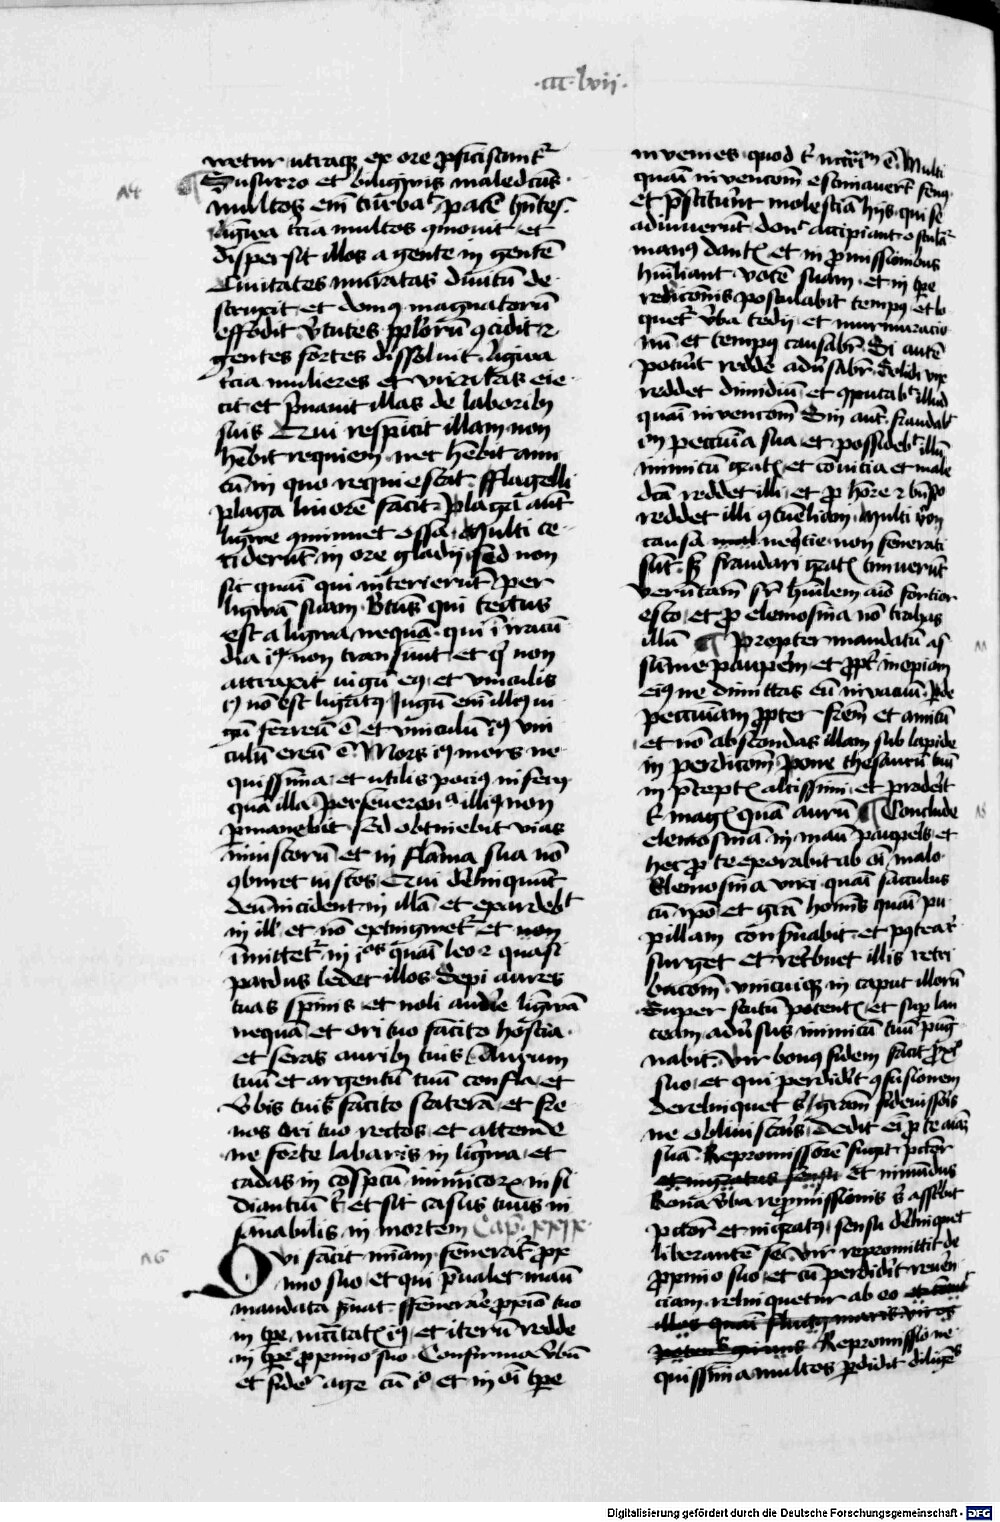 ·ccc·lvii·
netur utraque ex ore proficiscuntur
Susurro et bilinguis maledictus
multos enim turbavit pacem habentes
lingua tercia multos commovit et
dispersit illos a gente in gentem
Civitates muratas divitum de-
struxit et domus magnatorum
effodit virtutes populorum concidit et
gentes fortes dissoluit lingua
tercia mulieres et viritas eie-
cit et privavit illas de laboribus
suis Qui respicit illam non
habebit requiem nec habebit ami-
cum in quo requiescat fflagelli
plaga livorem facit plaga autem
lingue comminuet ossa Multi ce-
ciderunt in ore gladij sed non
sic quam qui interierunt per
linguam suam Beatus qui tectus
est a lingua nequam qui in iracun-
dia eius non transivit et qui non
attraxit iugum eius et vinculis
eius non est ligatus Jugum enim illius iu-
gum ferreum est et vinculum eius vin-
culum ereum est Mors eius mors ne-
quissima et utilis pocius inferus
quam illa perseverancia illius non
permanebit sed obtinebit vias
iniustorum et in flamma sua non
comburet iustos Qui delinquunt
deum incident in illam et exardebit
in illis et non extinguetur et
inmittetur in illos quam leo et quasi
pardus ledet illos Sepi aures
tuas spinis et noli audire linguam
nequam et ori tuo facito hostia
et seras auribus tuis Aurum
tuum et argentum tuum confla et
verbis tuis facito stateram et fre-
nos ori tuo rectos et attende
ne forte labaris in lingua et
cadas in conspectu inimicorum insi-
diantium tibi et sit casus tuus in-
sanabilis in mortem Cap. xxix
Qui facit misericordiam feneratur prox-
imo suo et qui prevalet manu
mandata servat ffenerare proximo tuo
in tempore necessitatis eius et iterum redde
in tempore proximo suo Confirma verbum
et fideliter age cum eo et in omni tempore
invenies quod tibi necessarium est Multi
quasi invencionem estimaverunt fenus
et prestiterunt molestiam hijs qui se
adiuverunt donec accipiant osculantur
manus dantis et in promissionibus
humiliant vocem suam et in tempore
reddicionis postulabit tempus et lo-
quetur verba tedij et murmuracio-
num et tempus causabitur Si autem
potuerit reddere adversabitur Solidi vix
reddet dimidium et computabit illud
quasi invencionem Sin autem fraudabit
illum peccunia sua et possidebit illum
inimicum gratis et convicia et male-
dicta reddet illi et pro honore et beneficio
reddet illi contumeliam Multi non
causa nequicie non fenerati
sunt sed fraudari gratis timuerunt
verumtamen super humilem animo forcior
esto et pro elemosina non trahas
illum Propter mandatum as-
sume pauperem et propter inopiam
eius ne dimittas eum in vacuum Perde
peccuniam propter fratrem et amicum
et non abscondas illam sub lapide
in perdicionem Pone thesaurum tuum
in preceptis altissimi et proderit
tibi magis quam aurum Conclude
elemosinam in manu pauperis et
hec pro te exorabit ab omni malo
Elemosina viri quasi sacculus
cum ipso et graciam hominis quasi pu-
pillam conservabit et postea re-
surget et retribuet illis retri-
bucionem unicuique in caput illorum
Super scutum potentis et super lan-
ceam adversus inimicum tuum pug-
nabit Vir bonus fidem facit proximo
suo et qui perdiderit confusionem
derelinquet sibi graciam fideiussoris
ne obliviscaris dedit enim pro te animam
suam Repromissorem fugit peccator
et inmundus
Bona verba repromissionis sibi asscribit
peccator et ingratus sensu delinquet
liberantem se Vir repromittit de
proximo suo et cum perdiderit reveren-
ciam relinquetur ab eo
Repromissio ne-
quissima multos perdidit diligentes